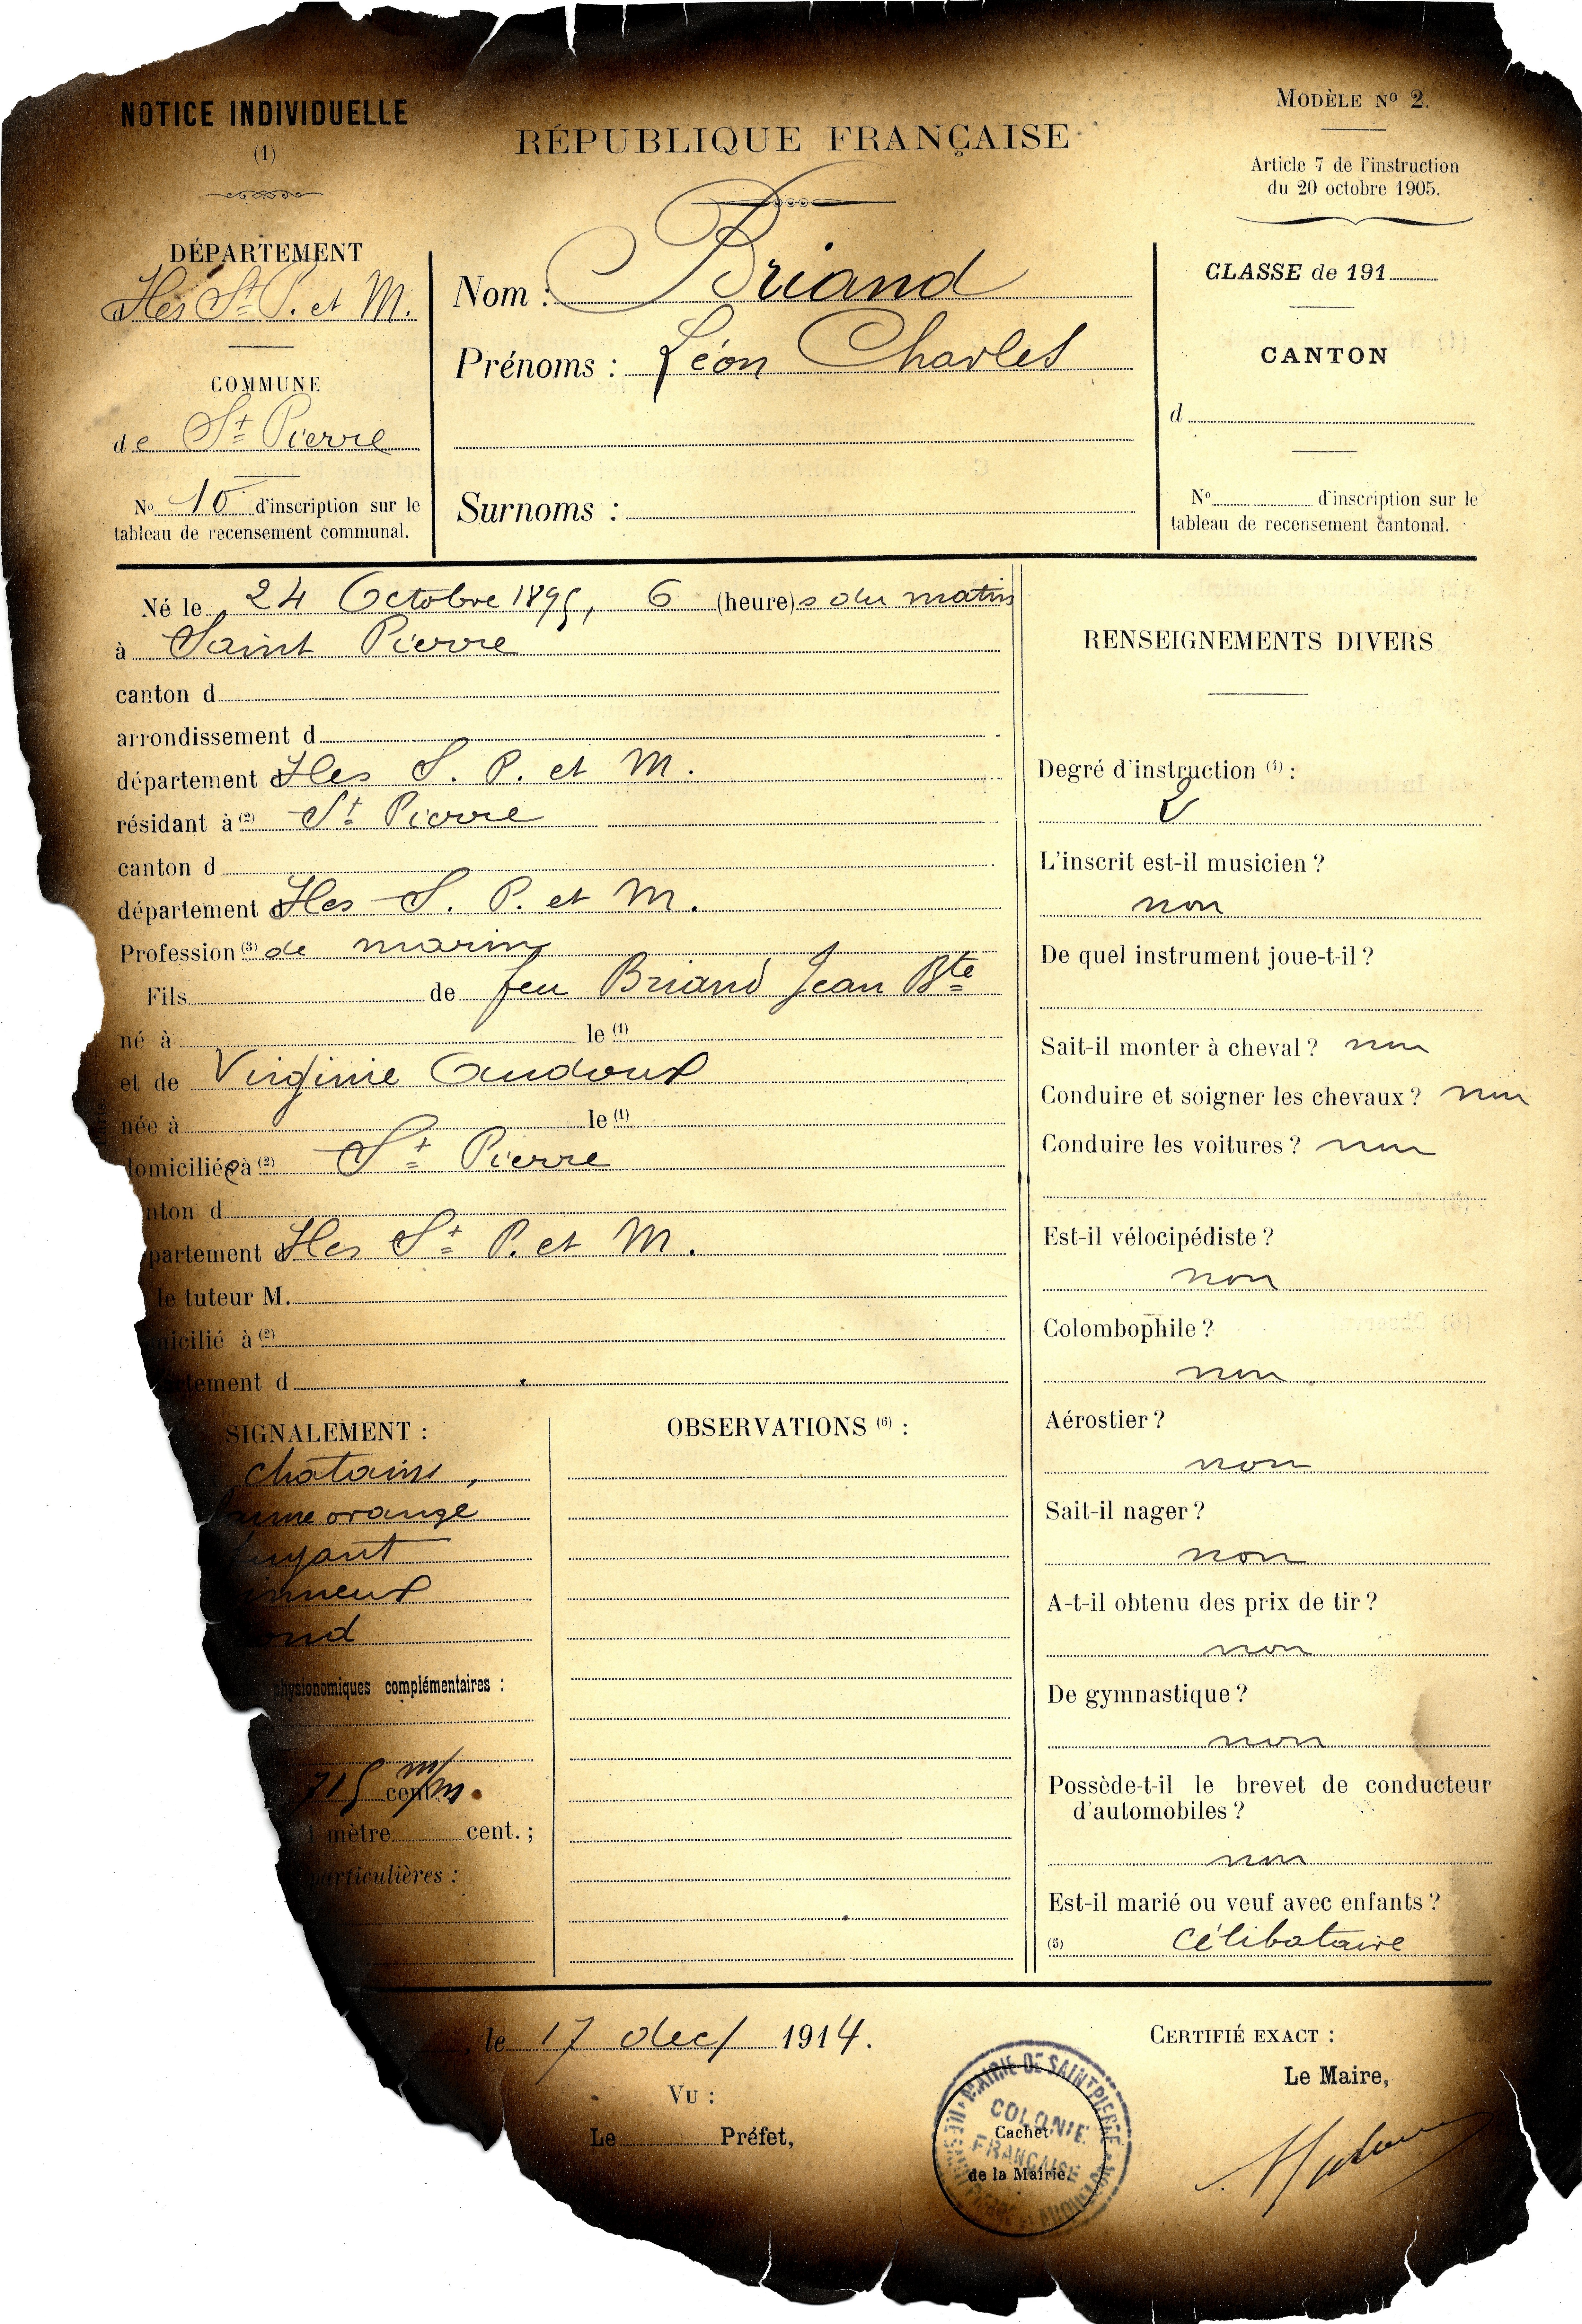 NOTICE INDIVIDUELLE
(1)
RÉPUBLIQUE FRANÇAISE
MODÈLE Nº 2.
Article 7 de l'instruction
du 20 octobre 1905.
DÉPARTEMENT
Iles St P. et M.
COMMUNE
de St Pierre
No 10 d'inscription sur le
tableau de recensement communal.
Nom : Briand
Prénoms : Léon Charles
Surnoms :
CLASSE de 191
CANTON
d
No d'inscription sur le
tableau de recensement cantonal.
Né le 24 Octobre 1895, 6 (heure)s du matin
à Saint Pierre
canton d
arrondissement d
département d Iles S. P. et M.
résidant à (2) St Pierre
canton d
département d Iles S. P. et M.
Profession (3) de marin
Fils de feu Briand Jean Bte
né à le (1)
et de Virginie Audoux
née à le (1)
domiciliée à (2) St Pierre
nton d
partement d Iles St P. et M.
le tuteur M.
micilié à (2)
tement d
SIGNALEMENT :
chatains,
jaune orange
fuyant
nneux
ond
physionomiques complémentaires :
715 cent. m/m.
1 mètre cent. ;
particulières :
OBSERVATIONS (6) :
RENSEIGNEMENTS DIVERS
Degré d'instruction (4) :
2
L'inscrit est-il musicien ?
non
De quel instrument joue-t-il ?
Sait-il monter à cheval ? non
Conduire et soigner les chevaux ? non
Conduire les voitures ? non
Est-il vélocipédiste ?
non
Colombophile ?
non
Aérostier ?
non
Sait-il nager ?
non
A-t-il obtenu des prix de tir ?
non
De gymnastique ?
non
Possède-t-il le brevet de conducteur
d'automobiles ?
non
Est-il marié ou veuf avec enfants ?
(5) célibataire
, le 17 dec/ 1914.
VU :
Le Préfet,
MAIRIE DE SAINT PIERRE
COLONIE
FRANÇAISE
Cachet
de la Mairie.
CERTIFIÉ EXACT :
Le Maire,